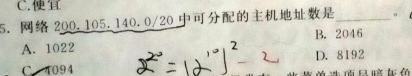 C.便宜
5. 网络 200.105.140.0/20 中可分配的主机地址数是______。
A. 1022
B. 2046
C. 4094
D. 8192
2²⁰=(2¹⁰)²-2